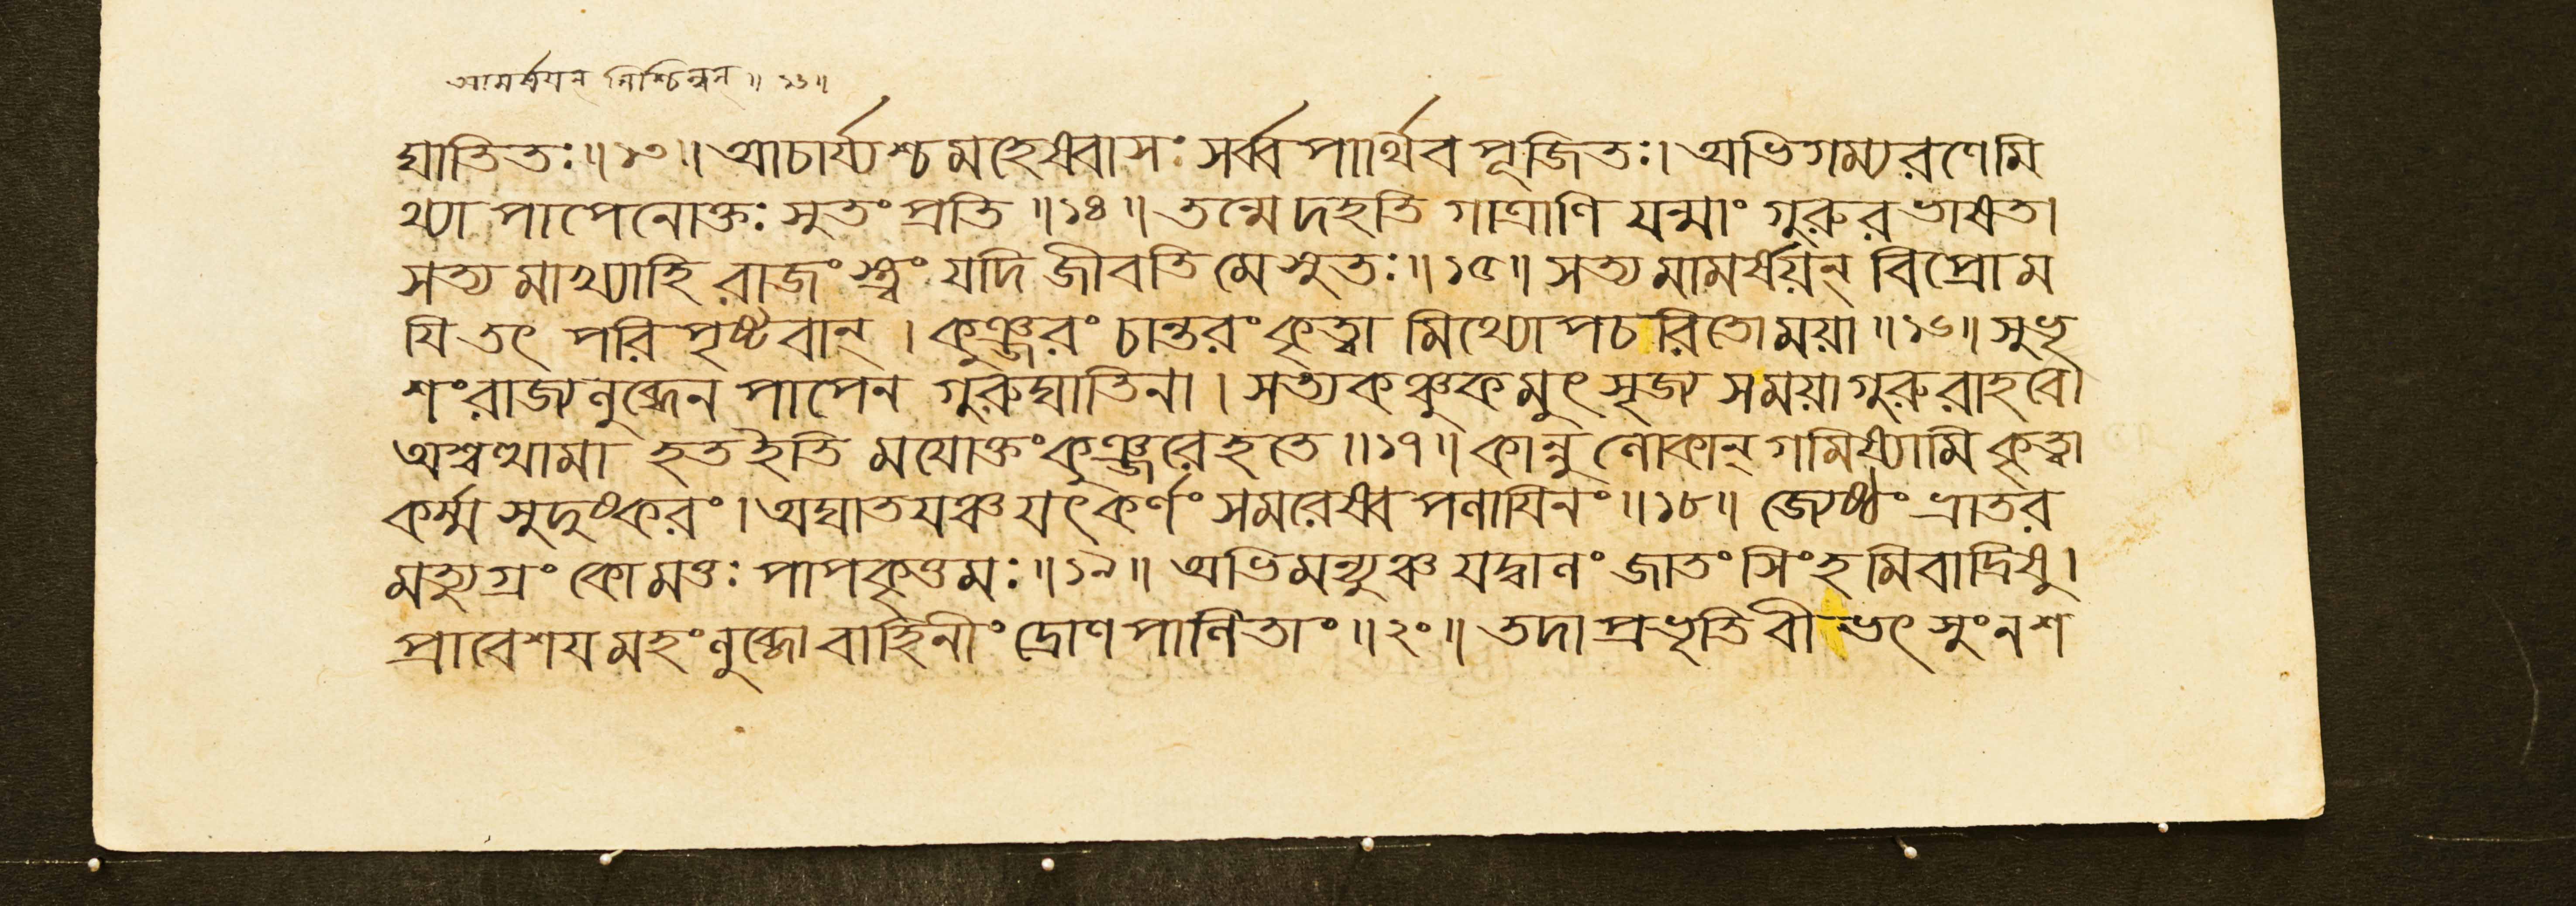 আমর্ষযন্ নিশ্চিন্বন্ ॥ ১৬॥
ঘাতিতঃ॥১৩॥ আচার্য্যশ্চ মহেষ্বাসঃ সর্ব্ব পার্থিব পূজিতঃ। অভিগম্য রণে মি
থ্যা পাপেনোক্তঃ সুতং প্রতি ॥১৪॥ তন্মে দহতি গাত্রাণি যন্মাং গুরুর ভাষত।
সত্য মাখ্যাহি রাজংস্ত্বং যদি জীবতি মে সুতঃ॥১৫॥ সত্য মামর্ষয়ন্ বিপ্রো ম
যি তৎ পরি পৃষ্টবান্ । কুঞ্জরং চান্তরং কৃত্বা মিথ্যোপচরিতো ময়া ॥১৬॥ সুভৃ
শং রাজ্যলুব্ধেন পাপেন গুরুঘাতিনা । সত্যকঞ্চুকমুৎসৃজ্য সময়া গুরুরাহবে।
অশ্বত্থামা হতইতি মযোক্তং কুঞ্জরে হতে ॥১৭॥ কান্নু লোকান্ গমিষ্যামি কৃত্বা
কর্ম্ম সুদুষ্করং। অঘাতযঞ্চ যৎকর্ণং সমরেষ্বপলাযিনং॥১৮॥ জ্যেষ্ঠং ভ্রাতর
মত্যুগ্রং কো মত্তঃ পাপকৃত্তমঃ॥১৯॥ অভিমন্যুঞ্চ যদ্বালং জাতং সিংহমিবাদ্রিষু।
প্রাবেশযমহং লুব্ধো বাহিনীং দ্রোণপালিতাং॥২০॥ তদাপ্রভৃতি বীভৎসুং নশ